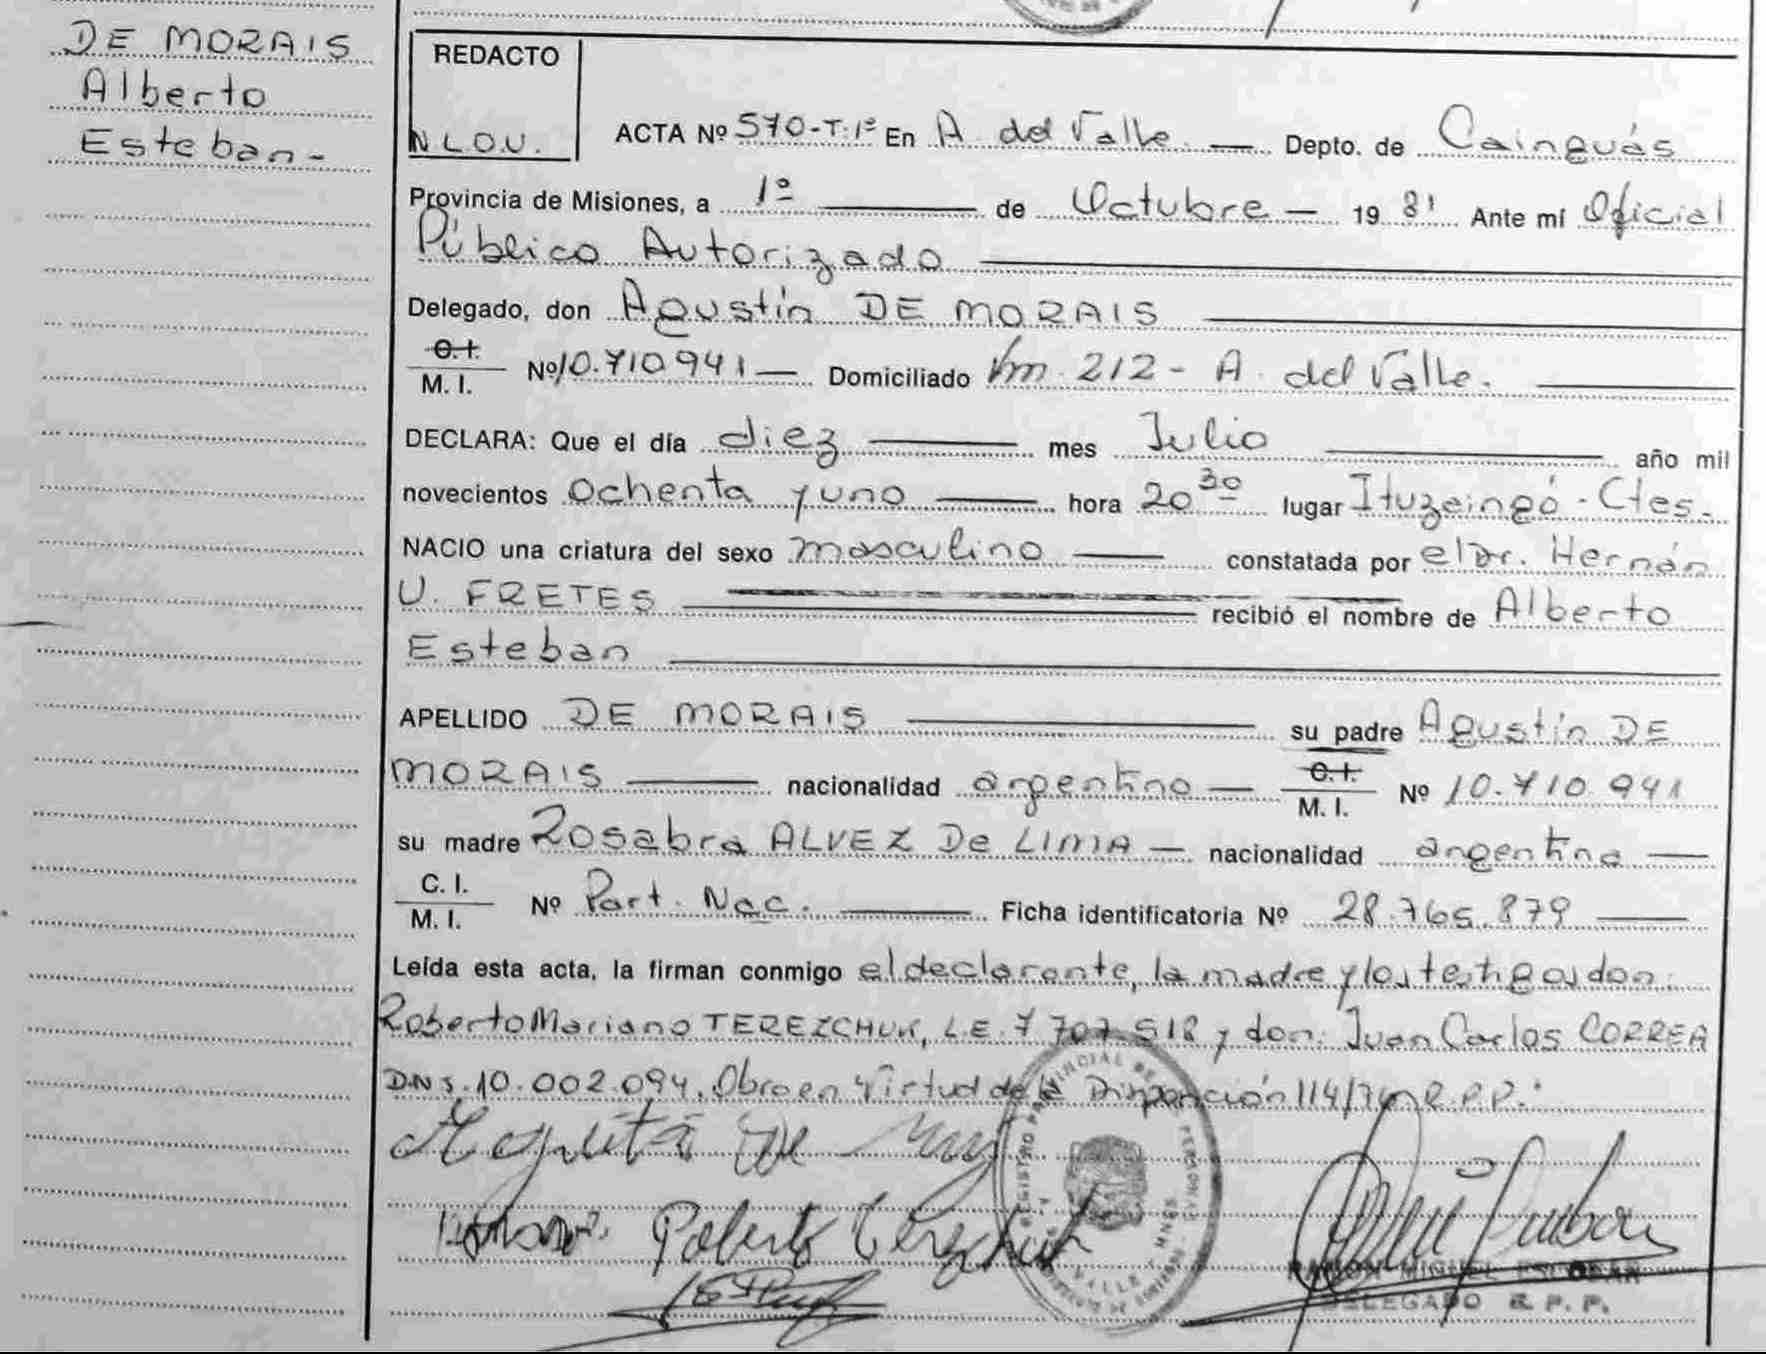 DE MORAIS
Alberto
Esteban-
REDACTO
N.L.O.U.
ACTA Nº 570-T:1º En A. del Valle. — Depto. de Cainguás
Provincia de Misiones, a 1º — de Octubre — 19 81 Ante mí Oficial
Público Autorizado
Delegado, don Agustín DE MORAIS
C.I. / M. I. Nº 10.710941 — Domiciliado Km. 212 - A. del Valle.
DECLARA: Que el día diez — mes Julio — año mil
novecientos ochenta y uno — hora 20 30 lugar Ituzaingó - Ctes.
NACIO una criatura del sexo masculino — constatada por el Dr. Hernán
U. FRETES — recibió el nombre de Alberto
Esteban
APELLIDO DE MORAIS — su padre Agustín DE
MORAIS — nacionalidad argentino — C.I. / M. I. Nº 10.710.941
su madre Rosabra ALVEZ De LIMA — nacionalidad argentina —
C. I. / M. I. Nº Part. Nac. — Ficha identificatoria Nº 28.765.879 —
Leída esta acta, la firman conmigo el declarante, la madre y los testigos don:
Roberto Mariano TEREZCHUK, L.E. 7.707.518 y don: Juan Carlos CORREA
D.N.I. 10.002.094. Obra en virtud de la Disposición 114/74 R.P.P.:
Roberto Terezchuk
REGISTRO PROVINCIAL DE LAS PERSONAS
VALLE
MNES
RAMON MIGUEL ESCOBAR
DELEGADO R. P. P.